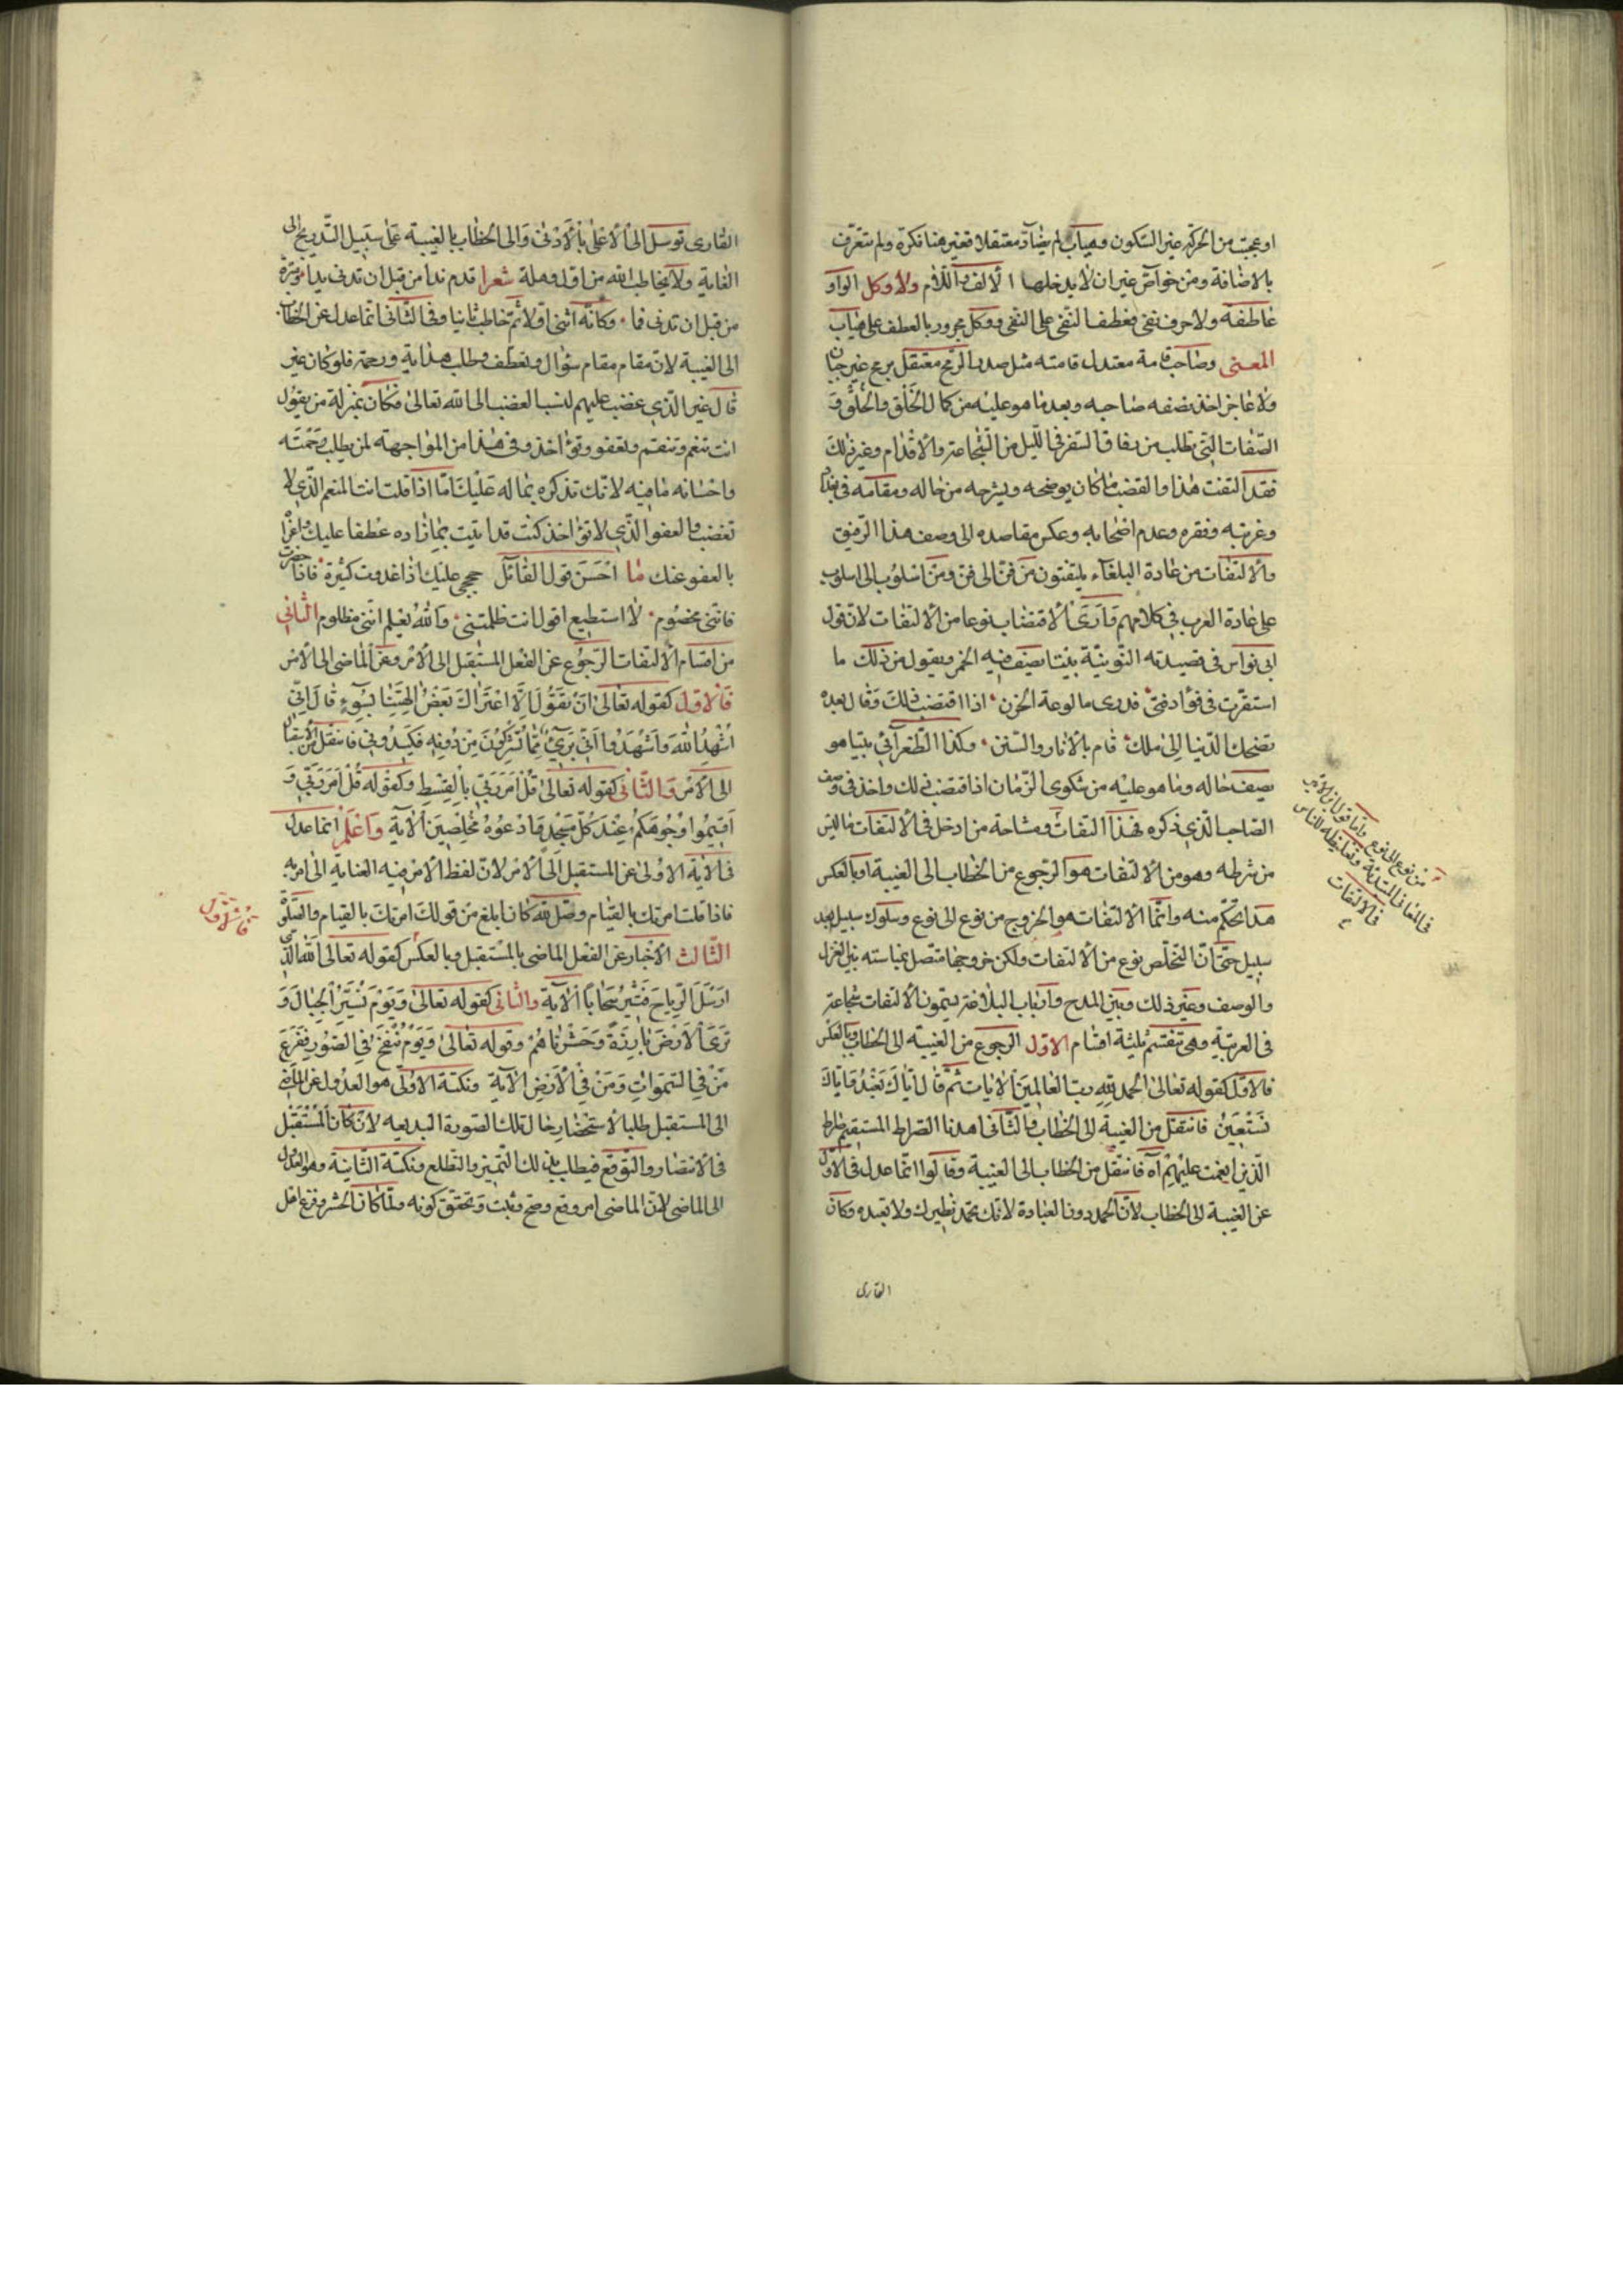 او عجبت من الحركة غير السكون وهياب لم يضاد معتقلا فغير هنا نكرة ولم تتعرف
بالاضافة ومن خواص غير ان لا يدخلها الالف واللام ولا وكل الواو
عاطفة ولا حرف نفى فعطف النفى على النفى ووكل مجرور بالعطف على هياب
المعنى وصاحب قامة معتدل قامته مثل صدر الرمح معتقل برمح غير جبان
ولا عاجز اخذ يصف صاحبه وبعد ما هو عليه من كمال الخلق والخلق و
الصفات التى تطلب من رفاق السفر فى الليل من الشجاعة والاقدام وغير ذلك
فقد التفت هذا واقتضب ما كان يوضحه ويشرحه من حاله ومقامه فى بغداد
وغربته وفقره وعدم اصحابه وعكس مقاصده الى وصف هذا الرفيق
والالتفات من عادة البلغاء يلتفتون من فن الى فن ومن اسلوب الى اسلوب
على عادة العرب فى كلامهم وارى الاقتضاب نوعا من الالتفات لان قول
ابى نواس فى قصيدته النونية بينا يصف فيه الخمر ويقول من ذلك ما
استقرت فى فؤاد فتى فدرى ما لوعة الحزن اذا اقتضب ذلك وقال بعده
تضحك الدنيا الى ملك قام بالاثار والسنن وكذا الطغرآئى بينا هو
يصف حاله وما هو عليه من شكوى الزمان اذ اقتضب ذلك واخذ فى وصف
الصاحب الذى ذكره فهذا التفات ومشاحة من ادخل فى الالتفات ما ليس
من شرطه وهو من الالتفات هو الرجوع من الخطاب الى الغيبة او بالعكس
هذا تحكم منه وانما الالتفات هو الخروج من نوع الى نوع وسلوك سبيل بعد
سبيل حتى ان التخلص نوع من الالتفات ولكن خروجها متصل بمناسبته بين الغزل
والوصف وغير ذلك وبين المدح وارباب البلاغة يسمون الالتفات شجاعة
فى العربية وهى تنقسم ثلثة اقسام الاول الرجوع من الغيبة الى الخطاب وبالعكس
فالاول كقوله تعالى الحمد لله رب العالمين الايات ثم قال اياك نعبد واياك
نستعين فانتقل من الغيبة الى الخطاب والثانى اهدنا الصراط المستقيم صراط
الذين انعمت عليهم آه فانتقل من الخطاب الى الغيبة وقالوا انما عدل فى الاول
عن الغيبة الى الخطاب لان الحمد دون العبادة لانك تحمد نظيرك ولا تعبده وكان
القارى
من نوع الى نوع واما قول ابن الاثير
فى المعانى وتغليطه للناس
فى الالتفات
القارى توسل الى الاعلى بالادنى والى الخطاب بالغيبة على سبيل التدريج الى
الغاية ولا يخاطب الله من اول وهلة شعرا قدم ندا من قبل ان تدنى يدا مؤتزرة
من قبل ان تدنى فا وكأنه اثنى اولا ثم خاطب ثانيا وفى الثانى انما عدل عن الخطاب
الى الغيبة لان مقام مقام سؤال وتعطف وطلب هداية ورحمة فلو كان غير
قال غير الذى غضبت عليهم لنسب الغضب الى الله تعالى فكان بمنزلة من يقول
انت تنعم وتنتقم وتعفو وتؤاخذ وفى هذا من المواجهة لمن يطلب رحمته
واحسانه ما فيه لانك تذكره بما له عليك اما اذا قلت انت المنعم الذى لا
تغضب والعفو الذى لا تؤاخذ كنت قد اتيت بما زاده عطفا عليك واغرا
بالعفو عنك ما احسن قول القائل حججى عليك اذا غدوت كثيرة فاذا حضرت
فاننى مخصوم لا استطيع اقول انت ظلمتنى والله يعلم اننى مظلوم الثانى
من اقسام الالتفات الرجوع عن الفعل المستقبل الى الامر وعن الماضى الى الامر
فالاول كقوله تعالى ان نقول الا اعتراك بعض الهتنا بسوء قال انى
اشهد الله واشهدوا انى برىء مما تشركون من دونه فكيدونى فانتقل من الاستقبال
الى الامر والثانى كقوله تعالى قل امر ربى بالقسط وكقوله قل امر ربى و
اقيموا وجوهكم عند كل مسجد وادعوه مخلصين الاية واعلم انما عدل
فى الاية الاولى عن المستقبل الى الامر لان لفظ الامر فيه العناية الى امر به
فاذا قلت امرتك بالقيام وصل لله كان ابلغ من قولك امرتك بالقيام والصلوة
الثالث الاخبار عن الفعل الماضى بالمستقبل وبالعكس كقوله تعالى الله الذى
ارسل الرياح فتثير سحابا الاية والثانى كقوله تعالى ويوم نسير الجبال و
ترى الارض بارزة وحشرناهم وقوله تعالى ويوم ننفخ فى الصور ففزع
من فى السموات ومن فى الارض الاية ونكتة الاولى هو العدول عن الماضى
الى المستقبل طلبا لاستحضار حال تلك الصورة البديعه لان كان المستقبل
فى الانتصار والتوقع فيطاب بذلك التميز والتطلع ونكتة الثانية وهو العدول
الى الماضى لان الماضى امر وقع وصح وثبت وتحقق كونه ولما كان الحشر وفزع اهل